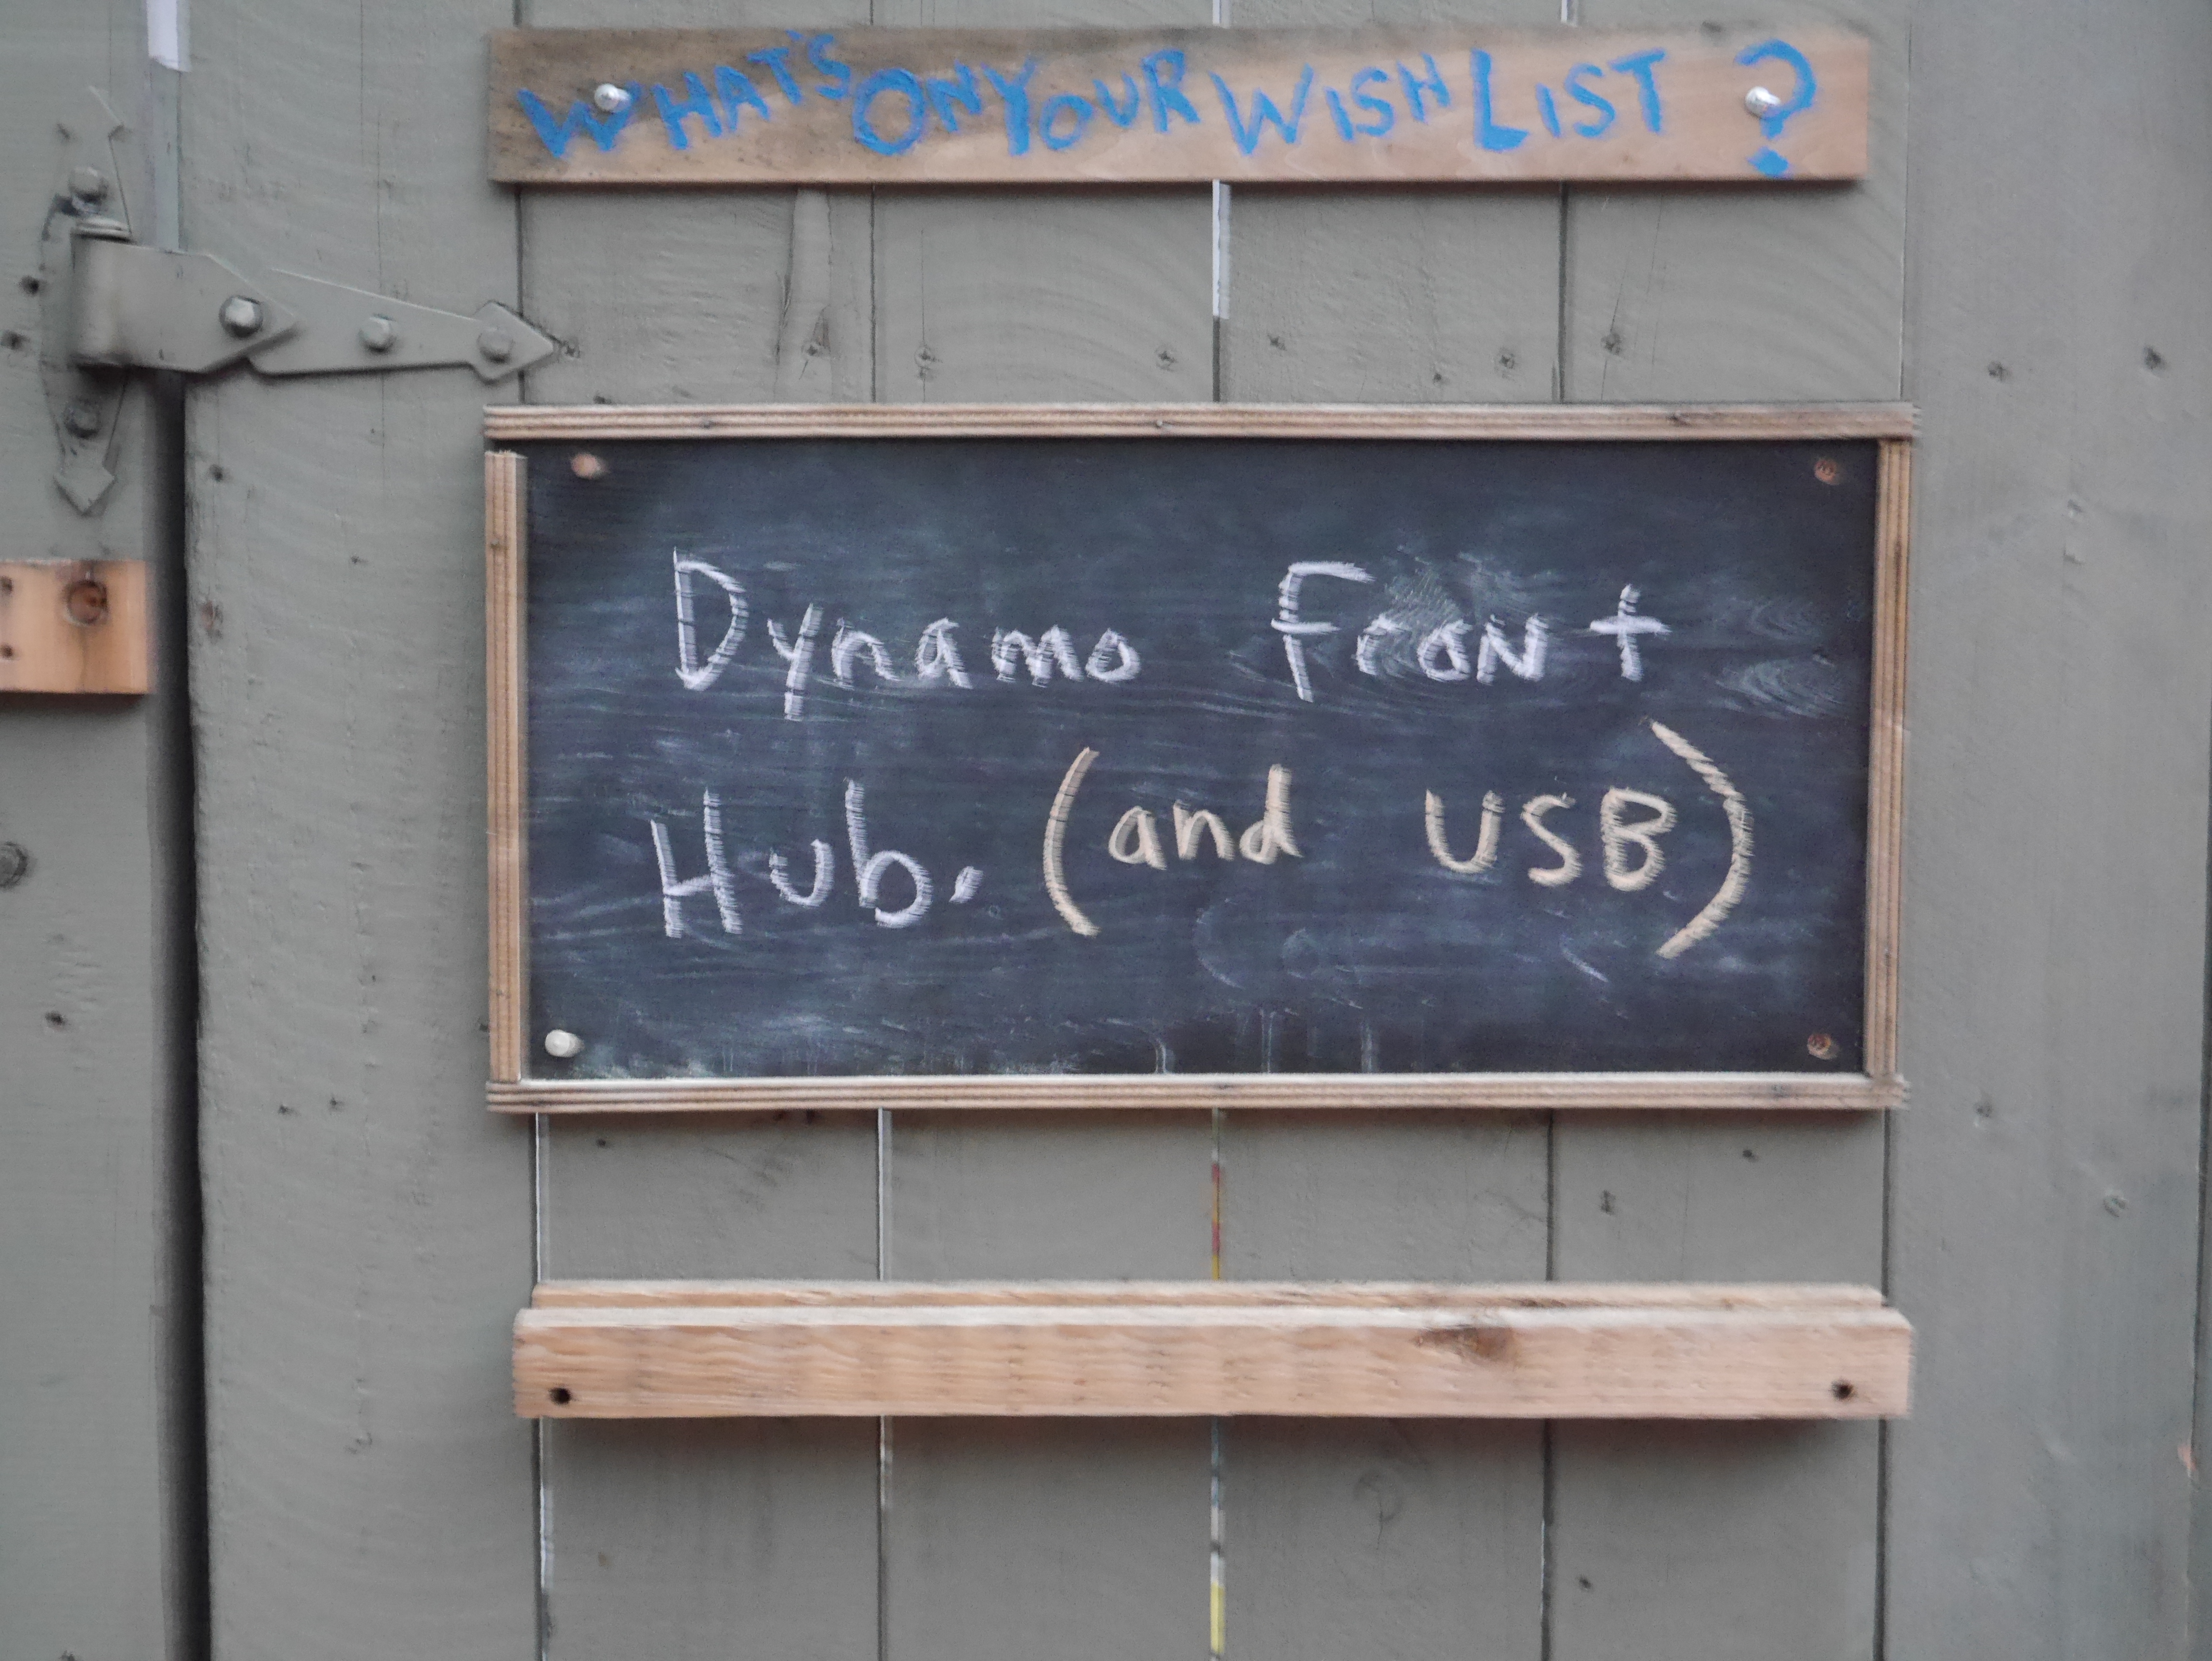 WHAT'S ON YOUR WISH LIST ?
Dynamo Front
Hub. (and USB)